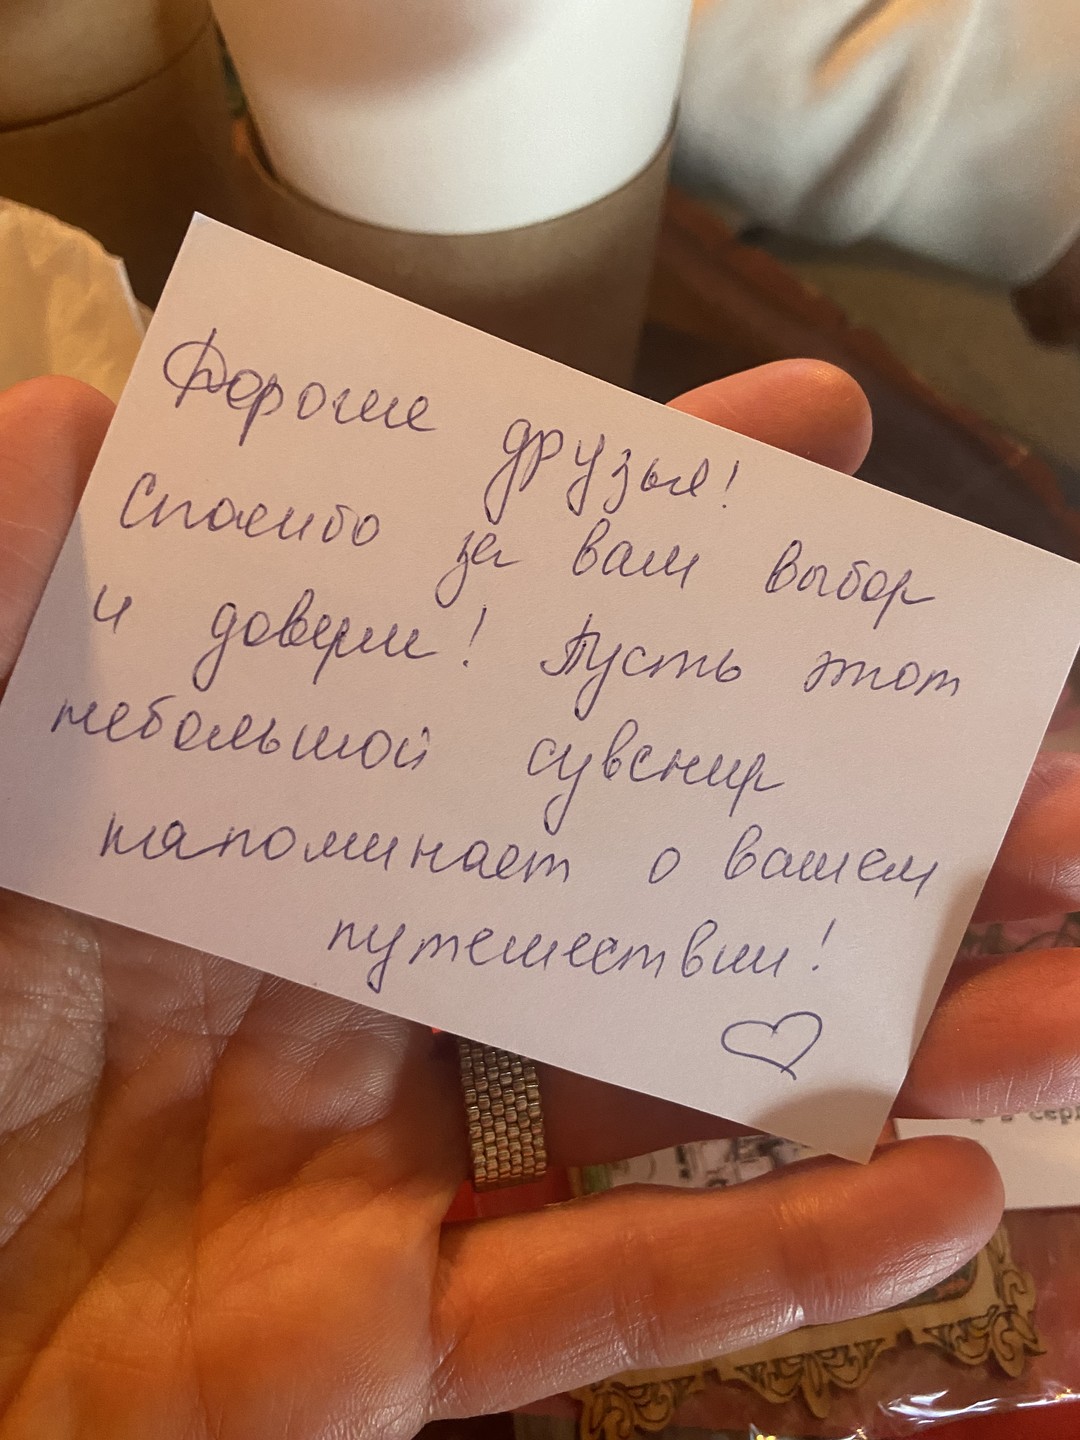 Дорогие друзья!
Спасибо за ваш выбор
и доверие! Пусть этот
небольшой сувенир
напоминает о вашем
путешествии!